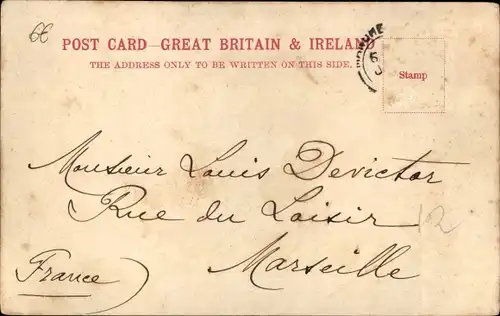 POST CARD—GREAT BRITAIN & IRELAND
THE ADDRESS ONLY TO BE WRITTEN ON THIS SIDE.
Stamp
Monsieur Louis Devictor
Rue du Loisir
12
Marseille
France